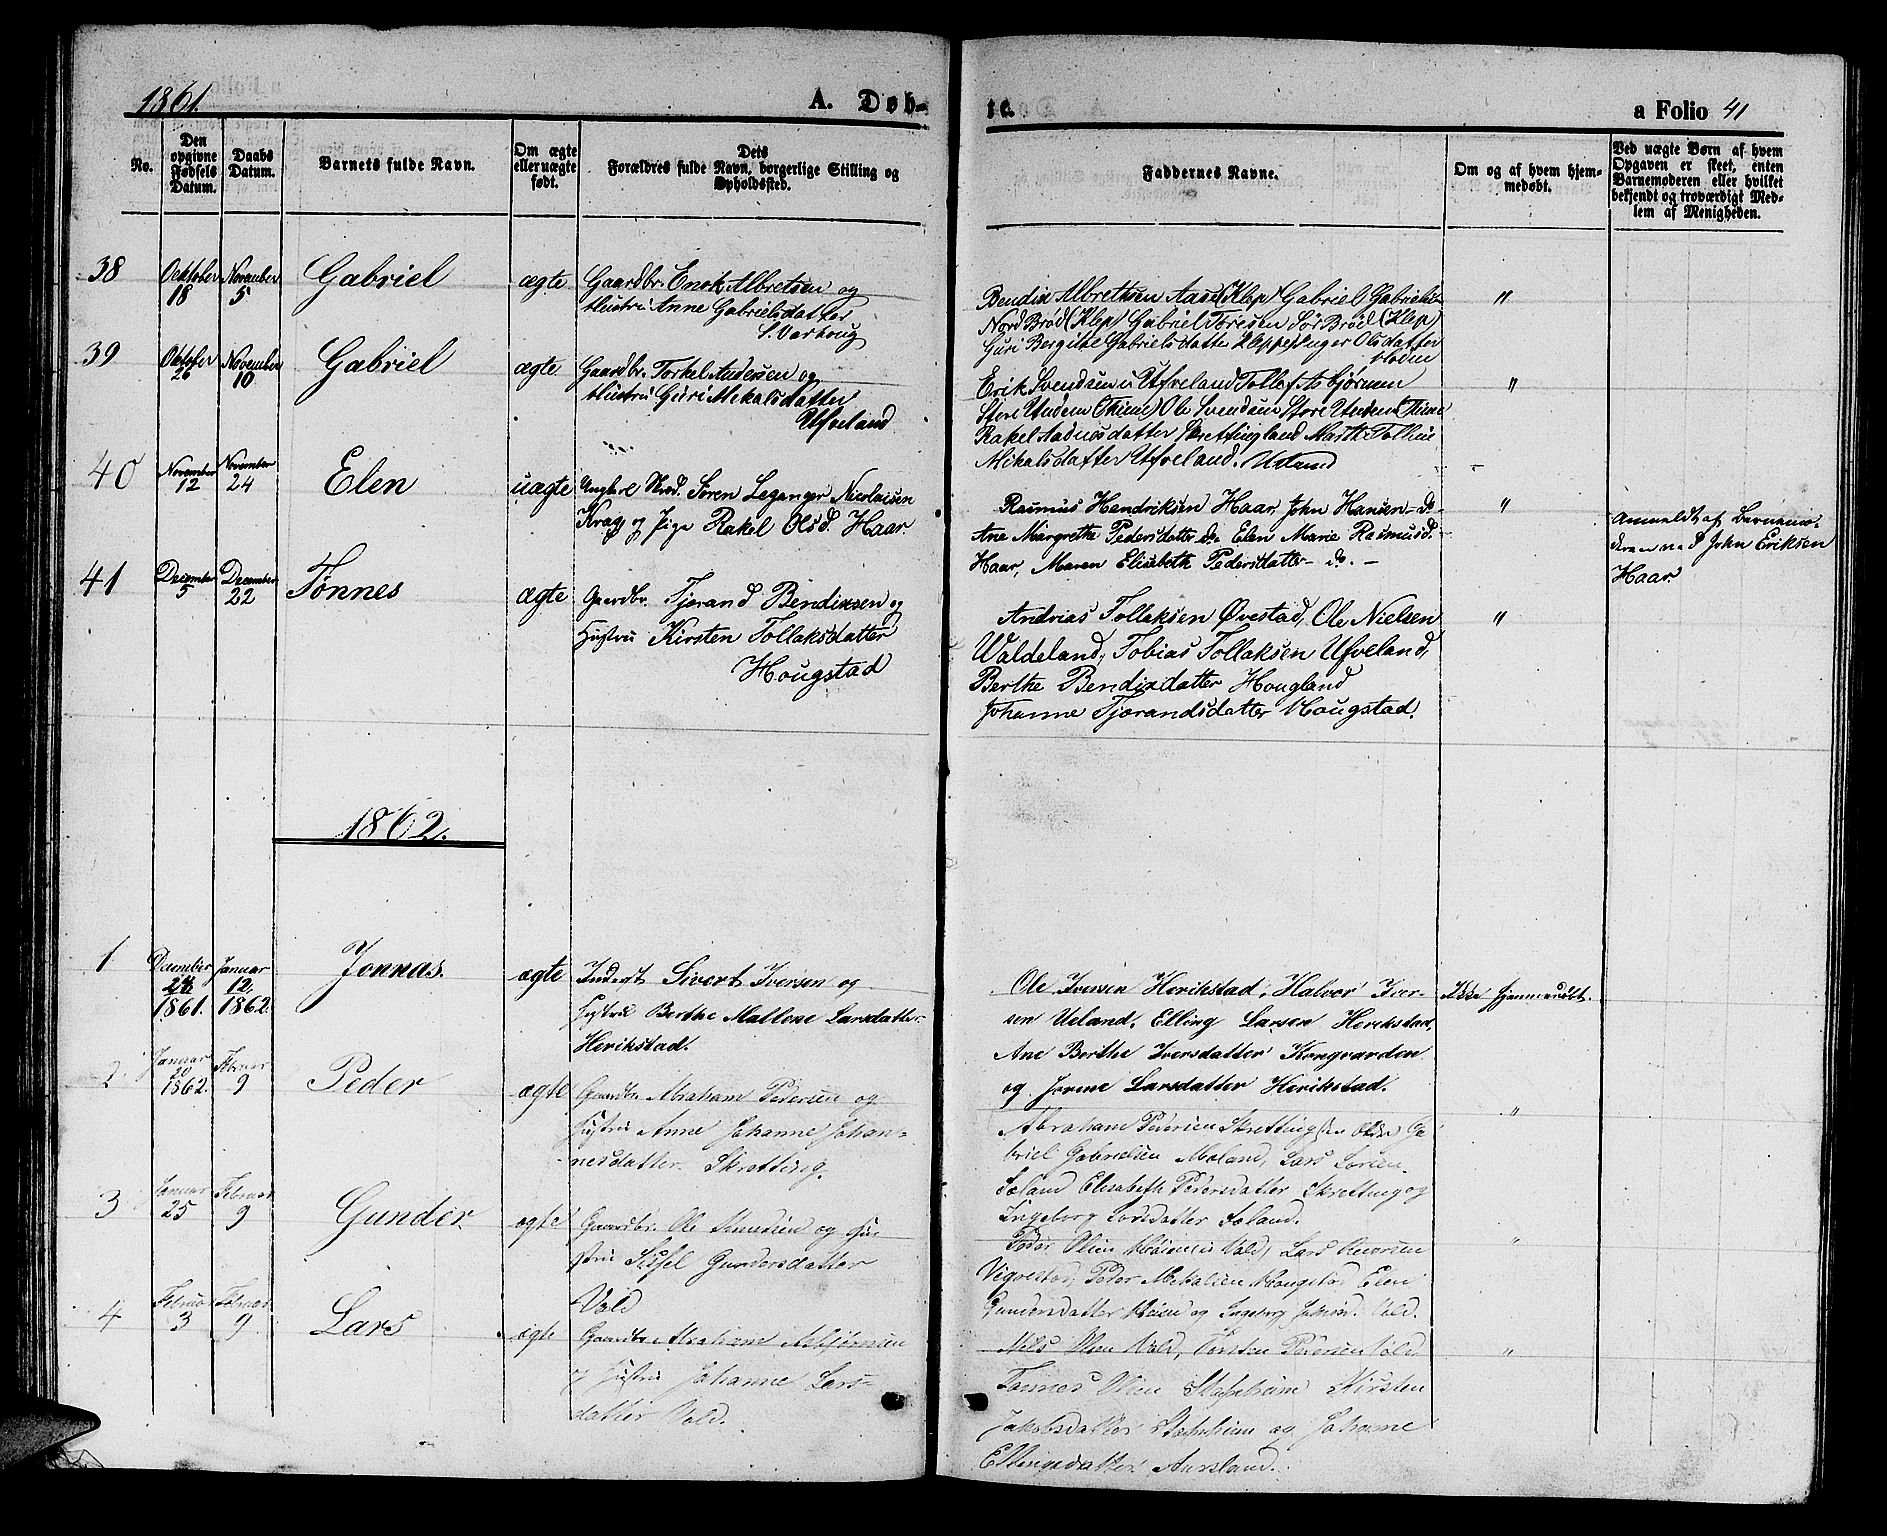 1861.
A. Døb-
te.
a Folio 41
No.
Den opgivne Fødsels Datum.
Daabs Datum.
Barnets fulde Navn.
Om ægte eller uægte født.
Dets Forældres fulde Navn, borgerlige Stilling og Opholdssted.
Faddernes Navne.
Om og af hvem hjemmedøbt.
Ved uægte Børn af hvem Opgaven er skeet, enten Barnemoderen eller hvilket bekjendt og troværdigt Medlem af Menigheden.
38
Oktober 18
November 5
Gabriel
ægte
Gaardbr. Enok Albretsen og
Hustru Anne Gabrielsdatter
S. Varhoug
Bendix Albrethsen Aase (Klep) Gabriel Gabrielsen
Nord Brød (Klep) Gabriel Toresen Sør Brød (Klep)
Guri Bergithe Gabrielsdatter Inger Olsdatter
"
39
Oktober 26
November 10
Gabriel
ægte
Gaardbr. Torkel Andersen og
Hustru Guri Mikalsdatter
Ufveland
Erik Svendsen Ufveland Tollef Asbjørnsen
Store Undem (Thime) Ole Svendsen Store Undem (Thime
Rakel Aadnesdatter Skrettingland Marthe Tolline
Mikalsdatter Ufveland.
"
40
November 12
November 24
Elen
uægte
Ungkarl Søren Leganger Nicolaisen
Krag og Pige Rakel Olsd. Haar.
Rasmus Hendriksen Haar, John Hansen - do -
Ane Margrethe Pedersdatter do. Elen Marie Rasmusd.
Haar, Maren Elisabeth Pedersdatter - do. -
"
Anmeldt af Barnemo-
deren ved John Eriksen
Haar
41
December 5
December 22
Tønnes
ægte
Gaardbr. Tjørand Bendixsen og
Hustru Kirsten Tollaksdatter
Hougstad
Andrias Tollaksen Øvestad, Ole Nielsen
Waldeland, Tobias Tollaksen Ufveland,
Berthe Bendixdatter Hougland
Johanne Tjørandsdatter Hougstad.
"
1862.
1
December 24 1861.
Januar 12. 1862.
Jonnas.
ægte
Inderst Sivert Iversen og
Hustru Berthe Mallene Larsdatter
Herikstad.
Ole Iversen Herikstad, Halvor Iver-
sen Ueland, Elling Larsen Herikstad,
Ane Berthe Iversdatter Kongvarden
og Jorine Larsdatter Herikstad.
Ikke hjemmedøbt.
2
Januar 20 1862.
Februar 9
Peder
ægte
Gaardbr. Abraham Pedersen og
Hustru Anne Johanne Johan-
nesdatter Skretting.
Abraham Pedersen Skretting Ga-
briel Gabrielsen Moland, Lars
Søland Elisabeth Pedersdatter Skretting og
Ingeborg Larsdatter Søland.
"
3
Januar 25
Februar 9
Gunder
ægte
Gaardbr. Ole Simonsen og Hu-
stru Sissel Gundersdatter
Vold
Peder Olsen Vold, Lars
Vigrestad, Peder Mikalsen Hougstad Elen
Gundersdatter og Ingeborg Vold.
"
4
Februar 3
Februar 9
Lars
ægte
Gaardbr. Abraham Asbjørnsen
og Hustru Johanne Lars-
datter Vold.
Nils Olsen Vold, Torsten Pedersen Vold
Tønnes Olsen Stokheim Kirsten
Jakobsdatter Stokheim og Johanne
Ellingsdatter Aarsland.
"